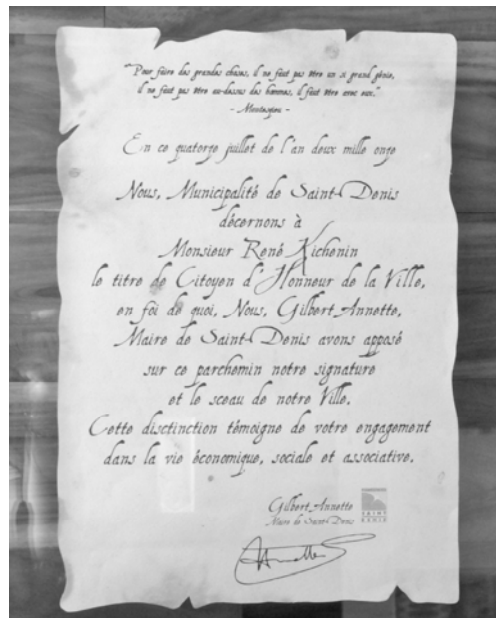 "Pour faire des grandes choses, il ne faut pas être un si grand génie,
il ne faut pas être au-dessus des hommes, il faut être avec eux."
- Montesquieu -
En ce quatorze juillet de l'an deux mille onze
Nous, Municipalité de Saint-Denis
décernons à
Monsieur René Kichenin
le titre de Citoyen d'Honneur de la Ville,
en foi de quoi, Nous, Gilbert Annette,
Maire de Saint-Denis avons apposé
sur ce parchemin notre signature
et le sceau de notre Ville.
Cette disctinction témoigne de votre engagement
dans la vie économique, sociale et associative.
Gilbert Annette
Maire de Saint-Denis
SAINT
DENIS